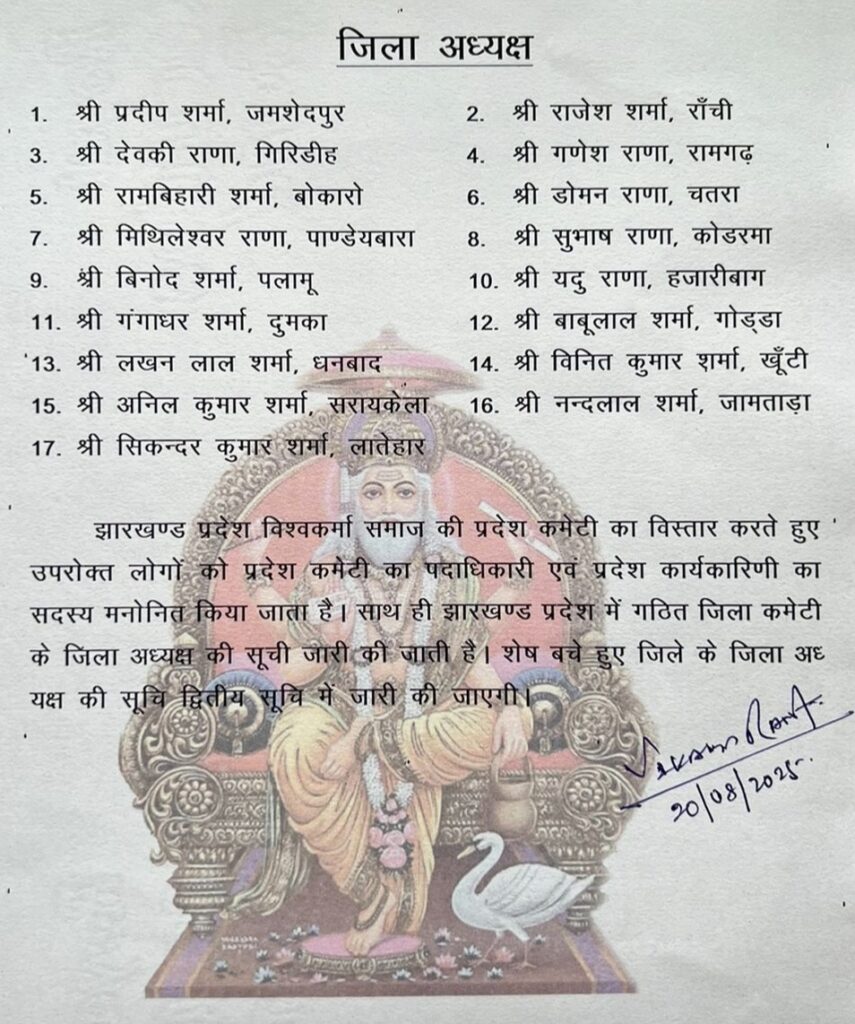 जिला अध्यक्ष
1. श्री प्रदीप शर्मा, जमशेदपुर 2. श्री राजेश शर्मा, राँची
3. श्री देवकी राणा, गिरिडीह 4. श्री गणेश राणा, रामगढ़
5. श्री रामबिहारी शर्मा, बोकारो 6. श्री डोमन राणा, चतरा
7. श्री मिथिलेश्वर राणा, पाण्डेयबारा 8. श्री सुभाष राणा, कोडरमा
9. श्री बिनोद शर्मा, पलामू 10. श्री यदु राणा, हजारीबाग
11. श्री गंगाधर शर्मा, दुमका 12. श्री बाबूलाल शर्मा, गोड्डा
13. श्री लखन लाल शर्मा, धनबाद 14. श्री विनित कुमार शर्मा, खूँटी
15. श्री अनिल कुमार शर्मा, सरायकेला 16. श्री नन्दलाल शर्मा, जामताड़ा
17. श्री सिकन्दर कुमार शर्मा, लातेहार
झारखण्ड प्रदेश विश्वकर्मा समाज की प्रदेश कमेटी का विस्तार करते हुए
उपरोक्त लोगों को प्रदेश कमेटी का पदाधिकारी एवं प्रदेश कार्यकारिणी का
सदस्य मनोनित किया जाता है। साथ ही झारखण्ड प्रदेश में गठित जिला कमेटी
के जिला अध्यक्ष की सूची जारी की जाती है। शेष बचे हुए जिले के जिला अध्
यक्ष की सूचि द्वितीय सूचि में जारी की जाएगी।
20/08/2025